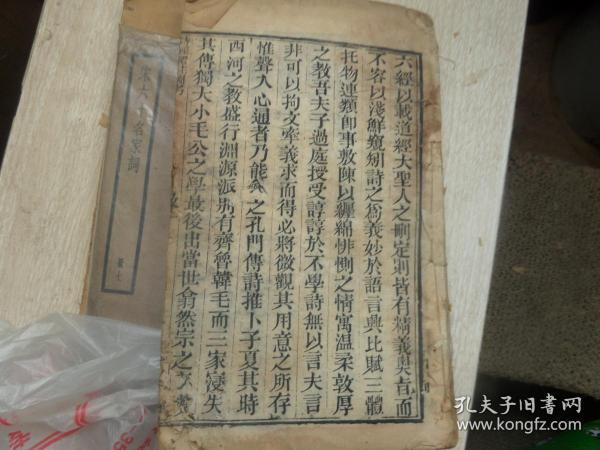 六經以載道經大聖人之刪定則皆有精義奧旨而
不容以淺鮮窺矧詩之爲義妙於語言興比賦三體
托物連類卽事敷陳以纏綿悱惻之情寓温柔敦厚
之教吾夫子過庭授受諄諄於不學詩無以言夫言
非可以拘文牽義求而得必將微觀其用意之所存
惟聲入心通者乃能 之孔門傳詩推卜子夏其時
西河之教盛行淵源派别有齊魯韓毛而三家寖失
其傳獨大小毛公之學最後出當世翕然宗之
宋六十名家詞
孔夫子旧書网
www.kongfz.com